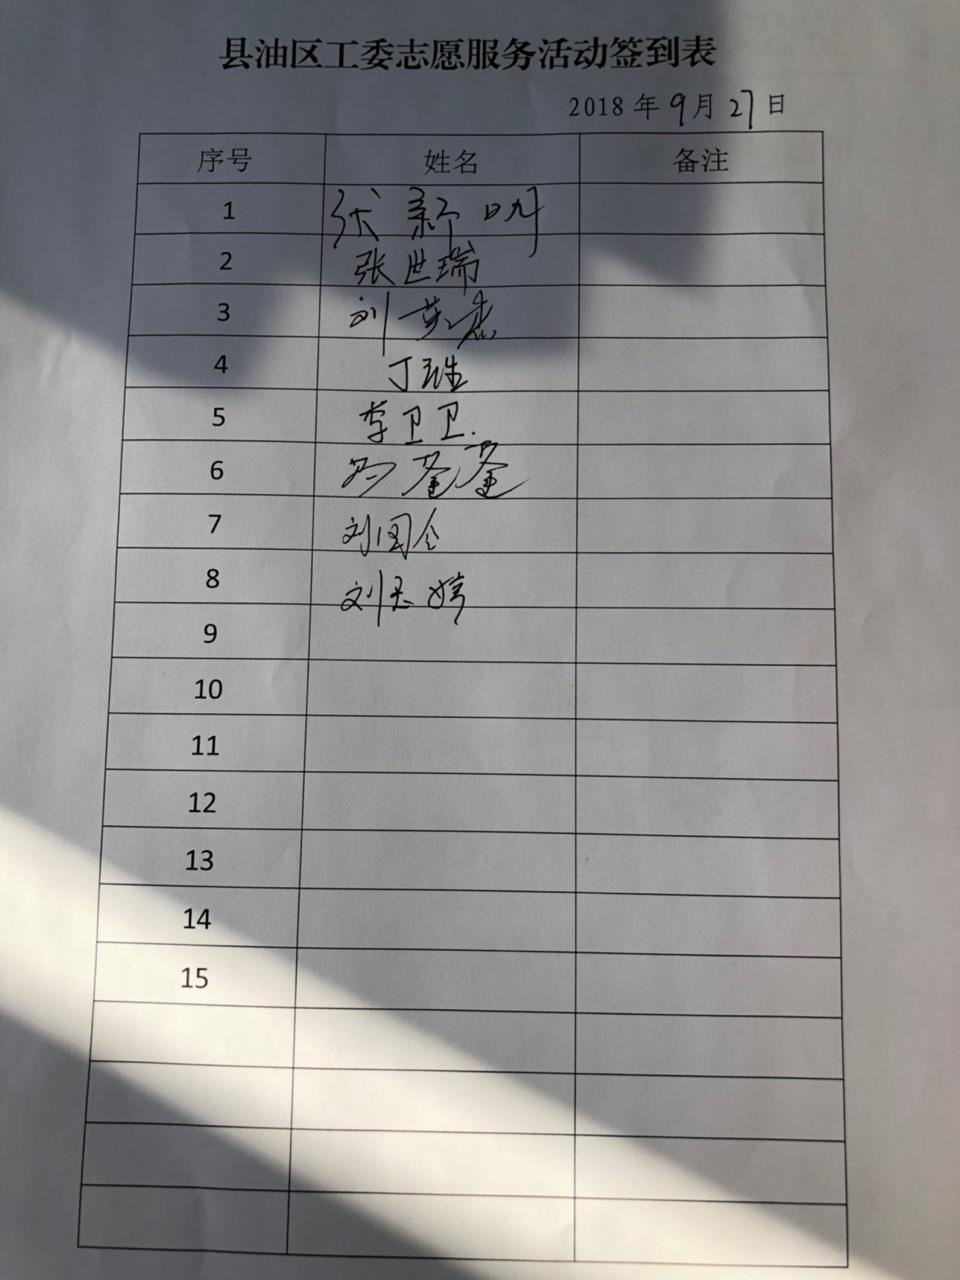 县油区工委志愿服务活动签到表
2018 年 9 月 27 日
序号 姓名 备注
1 张新明
2 张世瑞
3 刘英
4 丁
5 李卫卫
6
7 刘国令
8 刘 婷
9
10
11
12
13
14
15